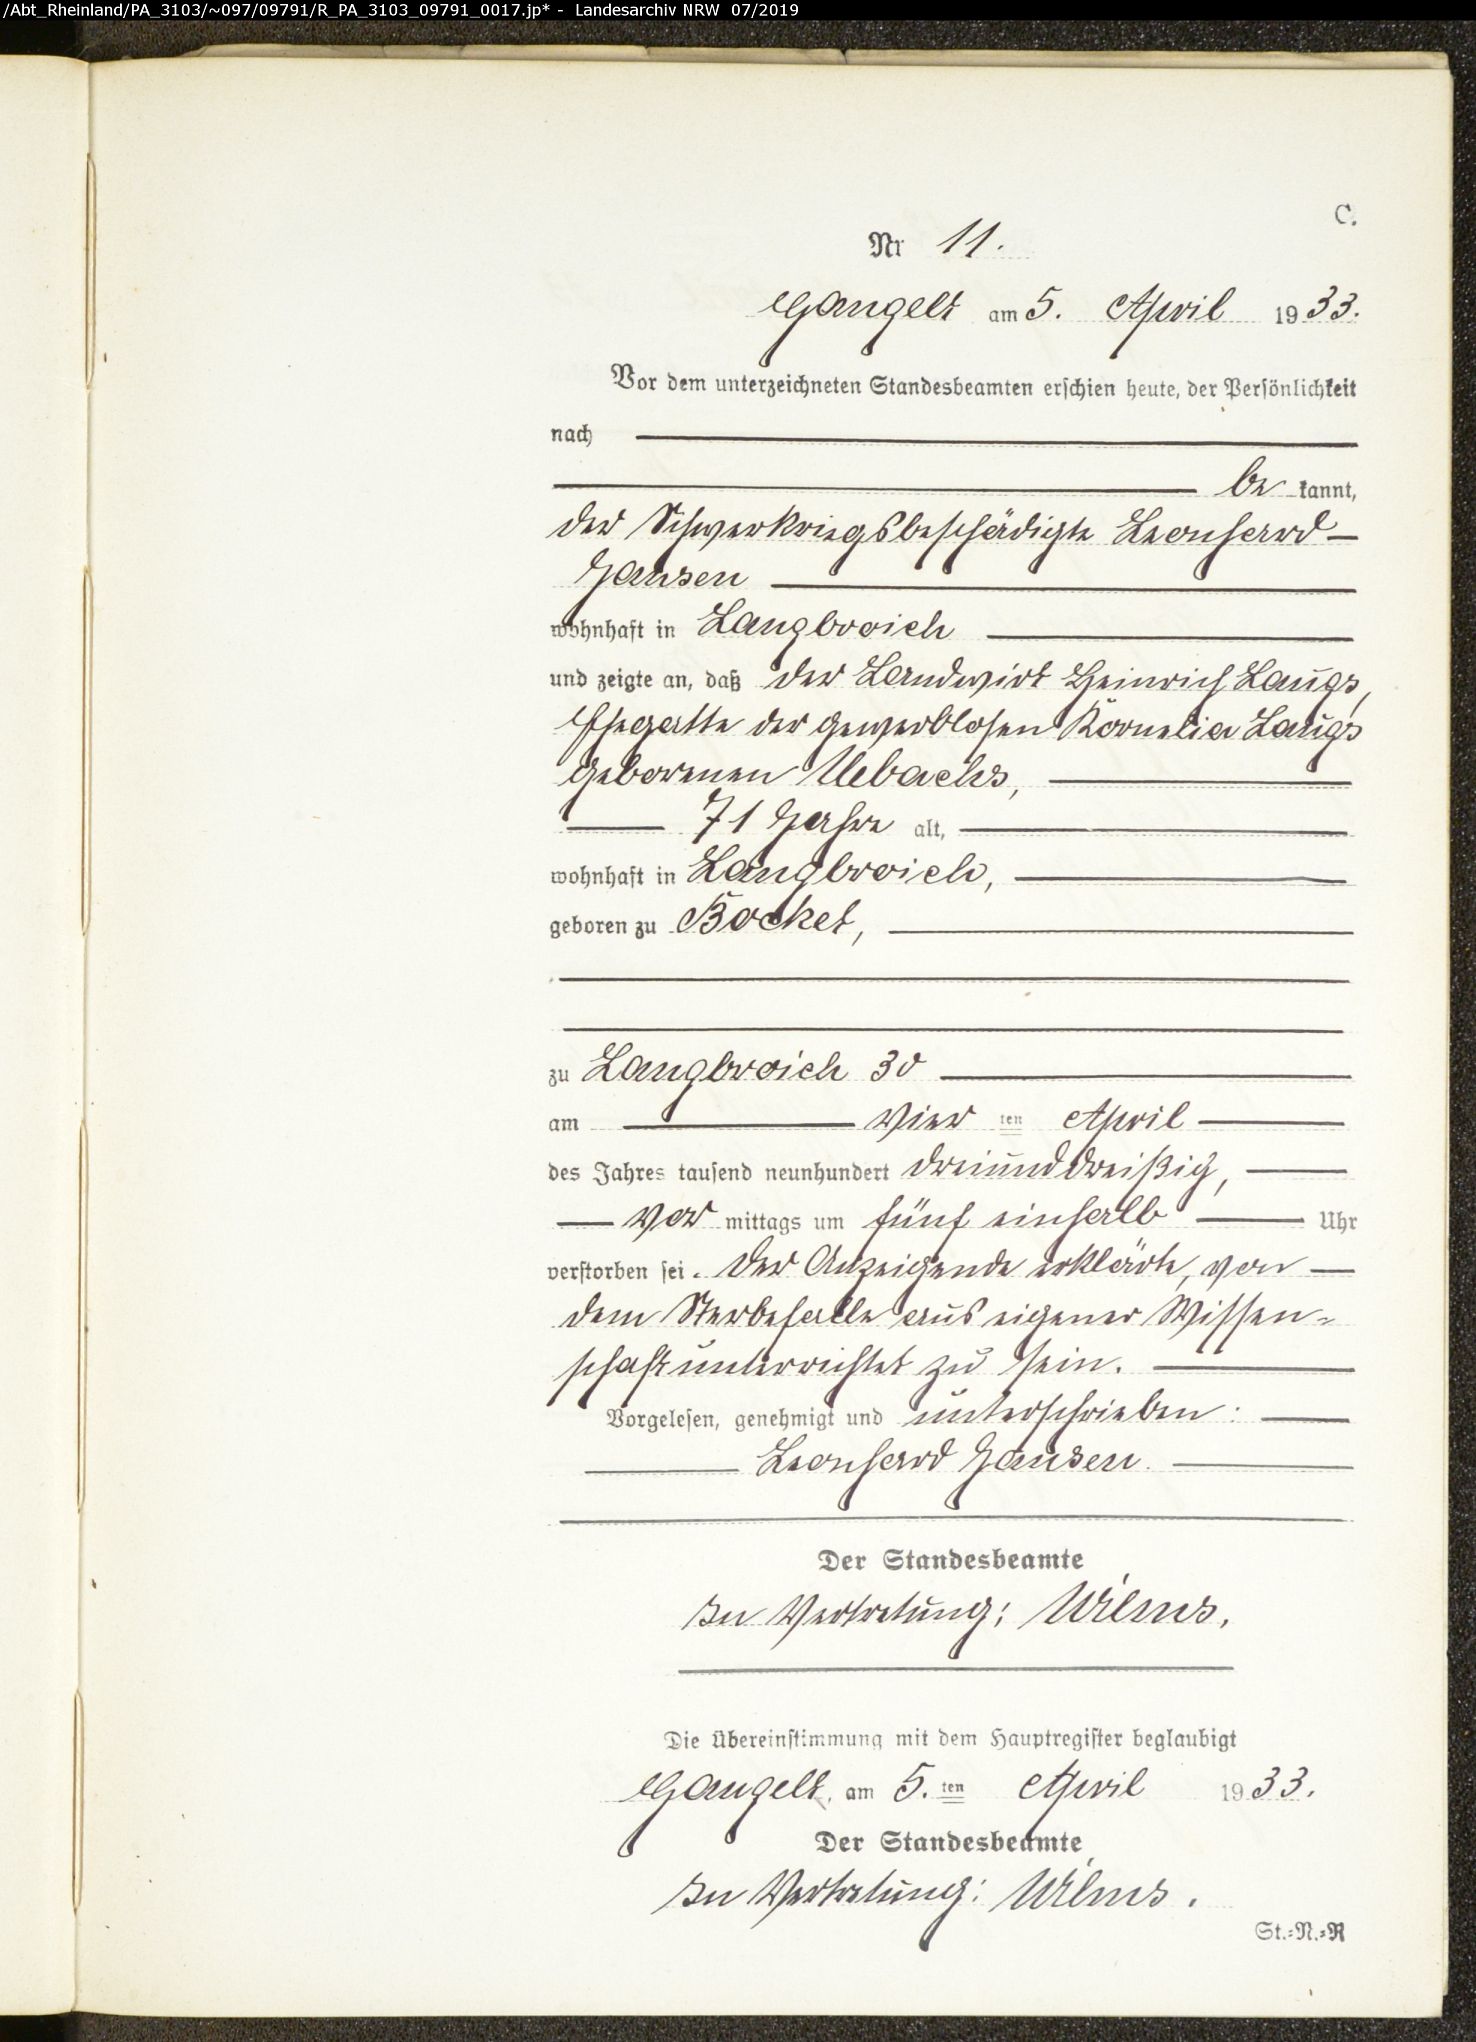 /Abt_Rheinland/PA_3103/~097/09791/R_PA_3103_09791_0017.jp* - Landesarchiv NRW 07/2019
C.
Nr 11.
Gangelt am 5. April 1933.
Vor dem unterzeichneten Standesbeamten erschien heute, der Persönlichkeit
nach
be kannt,
der Schwerkriegsbeschädigte Leonhard
Jansen
wohnhaft in Langbroich
und zeigte an, daß der Landwirt Heinrich Laugs,
Ehegatte der gewerblosen Kornelia Laugs
geborenen Uebachs,
71 Jahre alt,
wohnhaft in Langbroich,
geboren zu Bocket,
zu Langbroich 30
am vier ten April
des Jahres tausend neunhundert dreiunddreißig,
vor mittags um fünf einhalb Uhr
verstorben sei. Der Anzeigende erklärte, von
dem Sterbefalle aus eigener Wissen-
schaft unterrichtet zu sein.
Vorgelesen, genehmigt und unterschrieben:
Leonhard Jansen.
Der Standesbeamte
In Vertretung: Wilms.
Die Übereinstimmung mit dem Hauptregister beglaubigt
Gangelt, am 5. ten April 1933.
Der Standesbeamte
In Vertretung: Wilms.
St.-N.-R